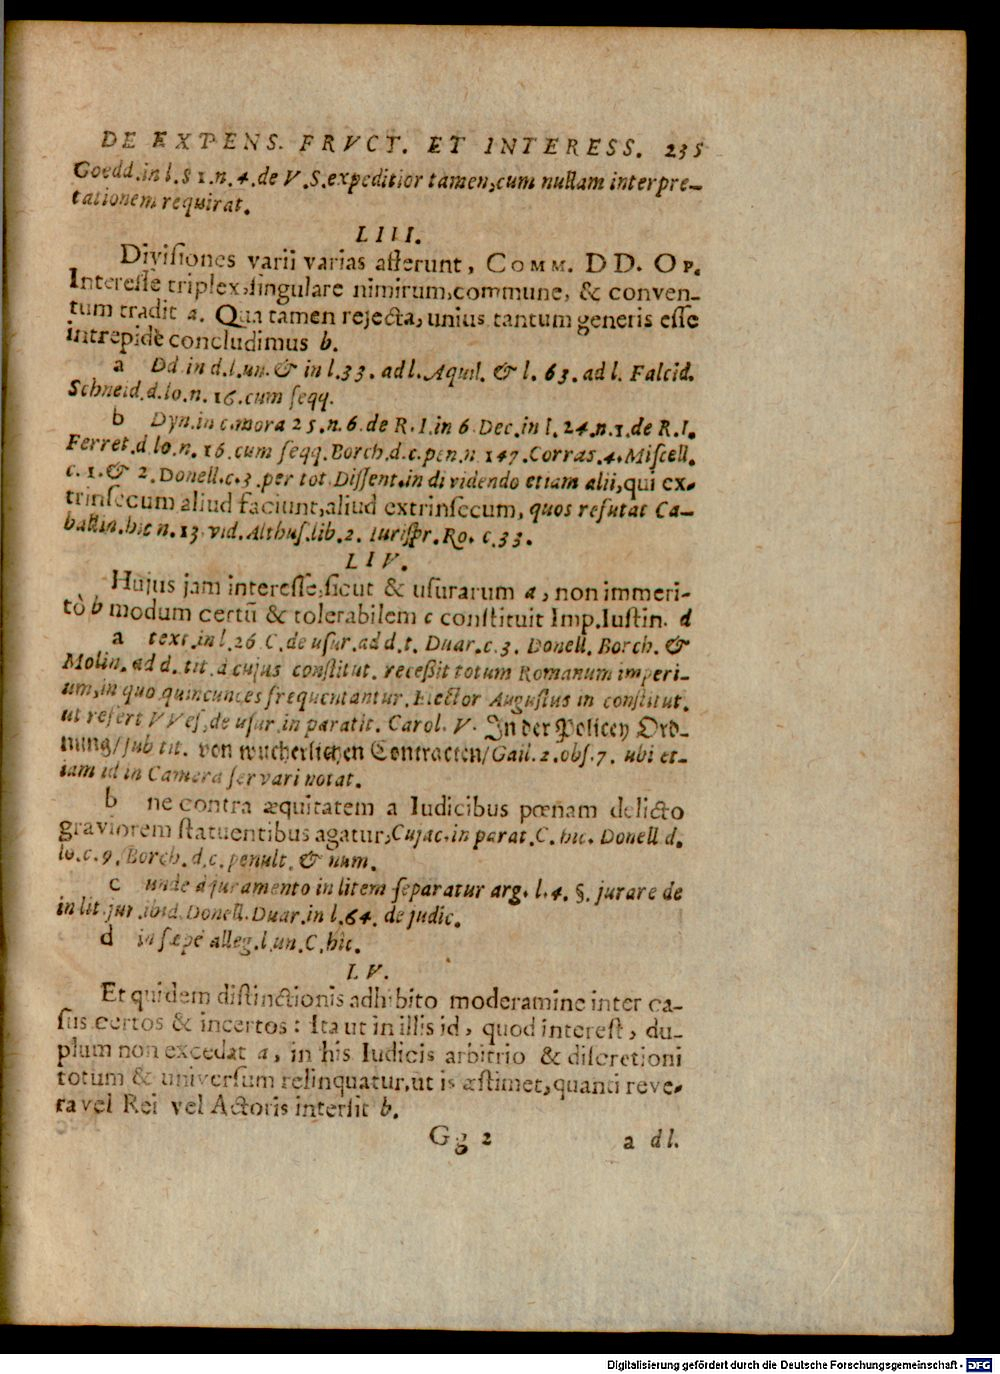 DE EXPENS. FRVCT. ET INTERESS. 235
Goedd.in l.81.n.4.de V.S.expeditior tamen,cum nullam interpre-
tationem requirat.
LIII.
Diviſiones varii varias afferunt, COMM. DD. OP.
Intereſſe triplex,ſingulare nimirum,commune, & conven-
tum tradit a. Qua tamen rejecta,unius tantum generis eſſe
intrepidè concludimus b.
a Dd in d.l.un.& in l.33. ad l.Aquil. & l. 63. ad l. Falcid.
Schneid.d.lo.n. 16.cum ſeqq.
b Dyn.in c.mora 25.n.6.de R.I.in 6 Dec.in l.24.n.1.de R.I.
Ferret.d lo.n. 16 cum ſeqq.Borch.d.c.pen.n 147.Corras.4.Miſcell.
c. 1.& 2.Donell.c.3.per tot.Diſſent.in dividendo etiam alii,qui ex-
trinſecum aliud faciunt,aliud extrinſecum, quos refutat Ca-
ballin.hic n.13.vid.Althuſ.lib.2. iuriſpr.Ro. c.33.
LIV.
Hujus jam intereſſe,ſicut & uſurarum a, non immeri-
tò b modum certū & tolerabilem c conſtituit Imp.Iuſtin. d
a text.in l.26 C.de uſur.ad d.t. Duar.c.3. Donell. Borch. &
Molin.ad d. tit. à cujus conſtitut. receßit totum Romanum imperi-
um,in quo quincunces frequentantur. Hector Auguſtus in conſtitut.
ut refert VVeſ.de uſur.in paratit. Carol. V. In der Policey Ord-
nung/ſub tit. von wucherlichen Contracten/Gail.2.obſ.7. ubi et-
iam id in Camera ſervari notat.
b ne contra æquitatem a Iudicibus pœnam delicto
graviorem ſtatuentibus agatur,Cujac.in parat.C. hic. Donell d.
lo.c.9.Borch.d.c.penult. & num.
c unde à juramento in litem ſeparatur arg. l.4. §. jurare de
in lit.jur.ibid.Donell.Duar.in l.64. de judic.
d in ſæpè alleg.l.un.C.hic.
LV.
Et quidem diſtinctionis adhibito moderamine inter ca-
ſus certos & incertos: Ita ut in illis id, quod intereſt, du-
plum non excedat a, in his Iudicis arbitrio & diſcretioni
totum & univerſum relinquatur,ut is æſtimet,quanti reve-
ra vel Rei vel Actoris interſit b.
Gg 2 a d l.
Digitalisierung gefördert durch die Deutsche Forschungsgemeinschaft - DFG